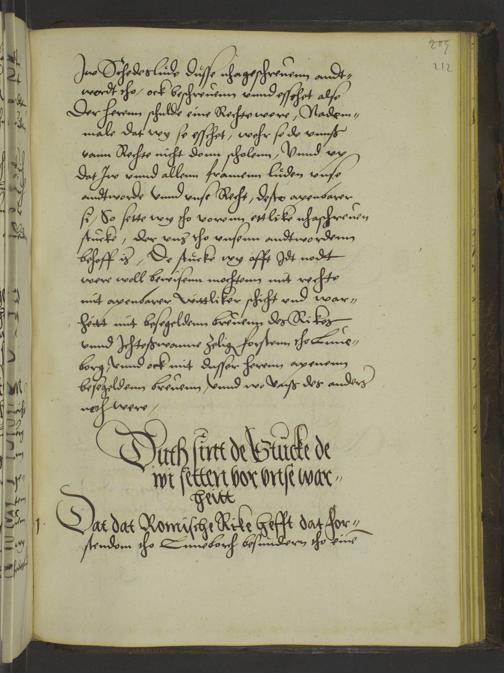 209
212
Jw Schedeslude dusse nhageschreuenn andt-
wordt tho, ock beschreuenn vnnd esschet also
Der herenn schulde eine Rechte were, Nadem-
male dat wy so esschet, wehr so de vnnß
vann Rechte nicht donn scholenn, Vnnd vp
dat Jw vnnd allenn framenn luden vnse
andtworde vnnd vnse Recht, deste apenbarer
si, So sette wy tho vorenn ettlike nhaschreuen
stucke, der vnß tho vnsenn andtwordenn
behoff is, De stucke wy offt Jdt nodt
were woll bewisenn mochtenn mit rechte
mit apenbarer Witliker schicht vnd war-
heitt mit besegeldenn breuenn des Rikes
vnnd Jchteßwanne zelig forstenn tho Lune-
borg, vnnd ock mit dusser herenn apenenn
besegeldenn breuenn, vnnd wo vnß des anders
noch were,
Duth sintt de Stucke de
wi setten vor vnse war-
heitt
1. Dat dat Romische Rike hefft dat for-
stendom tho Luneborch besundern tho eine